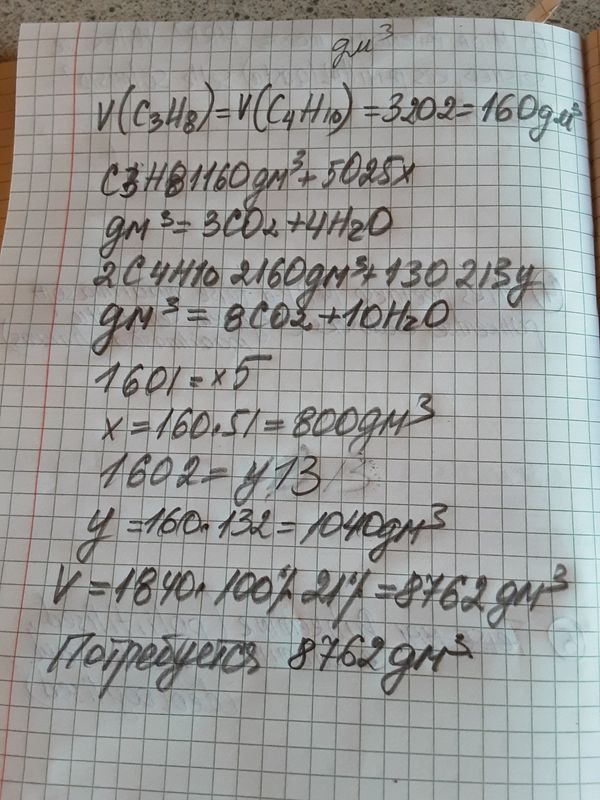 дм³
V(C₃H₈)=V(C₄H₁₀)=3202=160дм³
C3H81160дм³+5025x
дм³=3CO₂+4H₂O
2C4H10 2160дм³+130213y
дм³=8CO2+10H₂O
1601=x5
x=160.51=800дм³
1602=y13
y=160.132=1040дм³
V=1840.100%21%=8762дм³
Потребуется 8762дм³